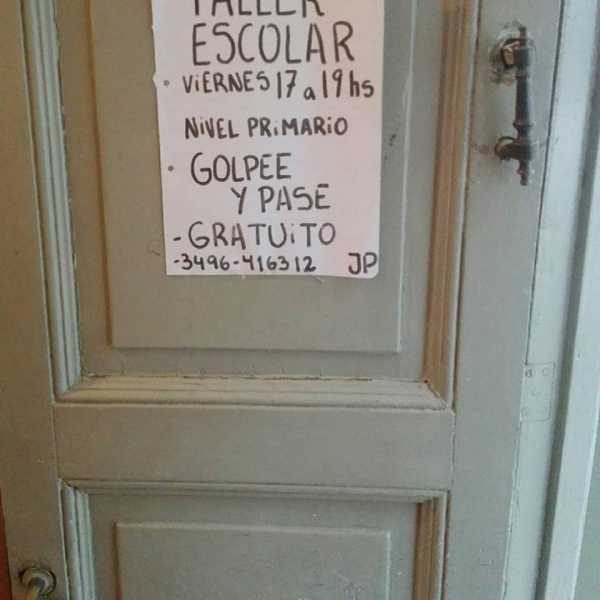 TALLER
ESCOLAR
• VIERNES 17 a 19hs
NIVEL PRIMARIO
• GOLPEE
Y PASE
- GRATUITO
-3496-416312 JP